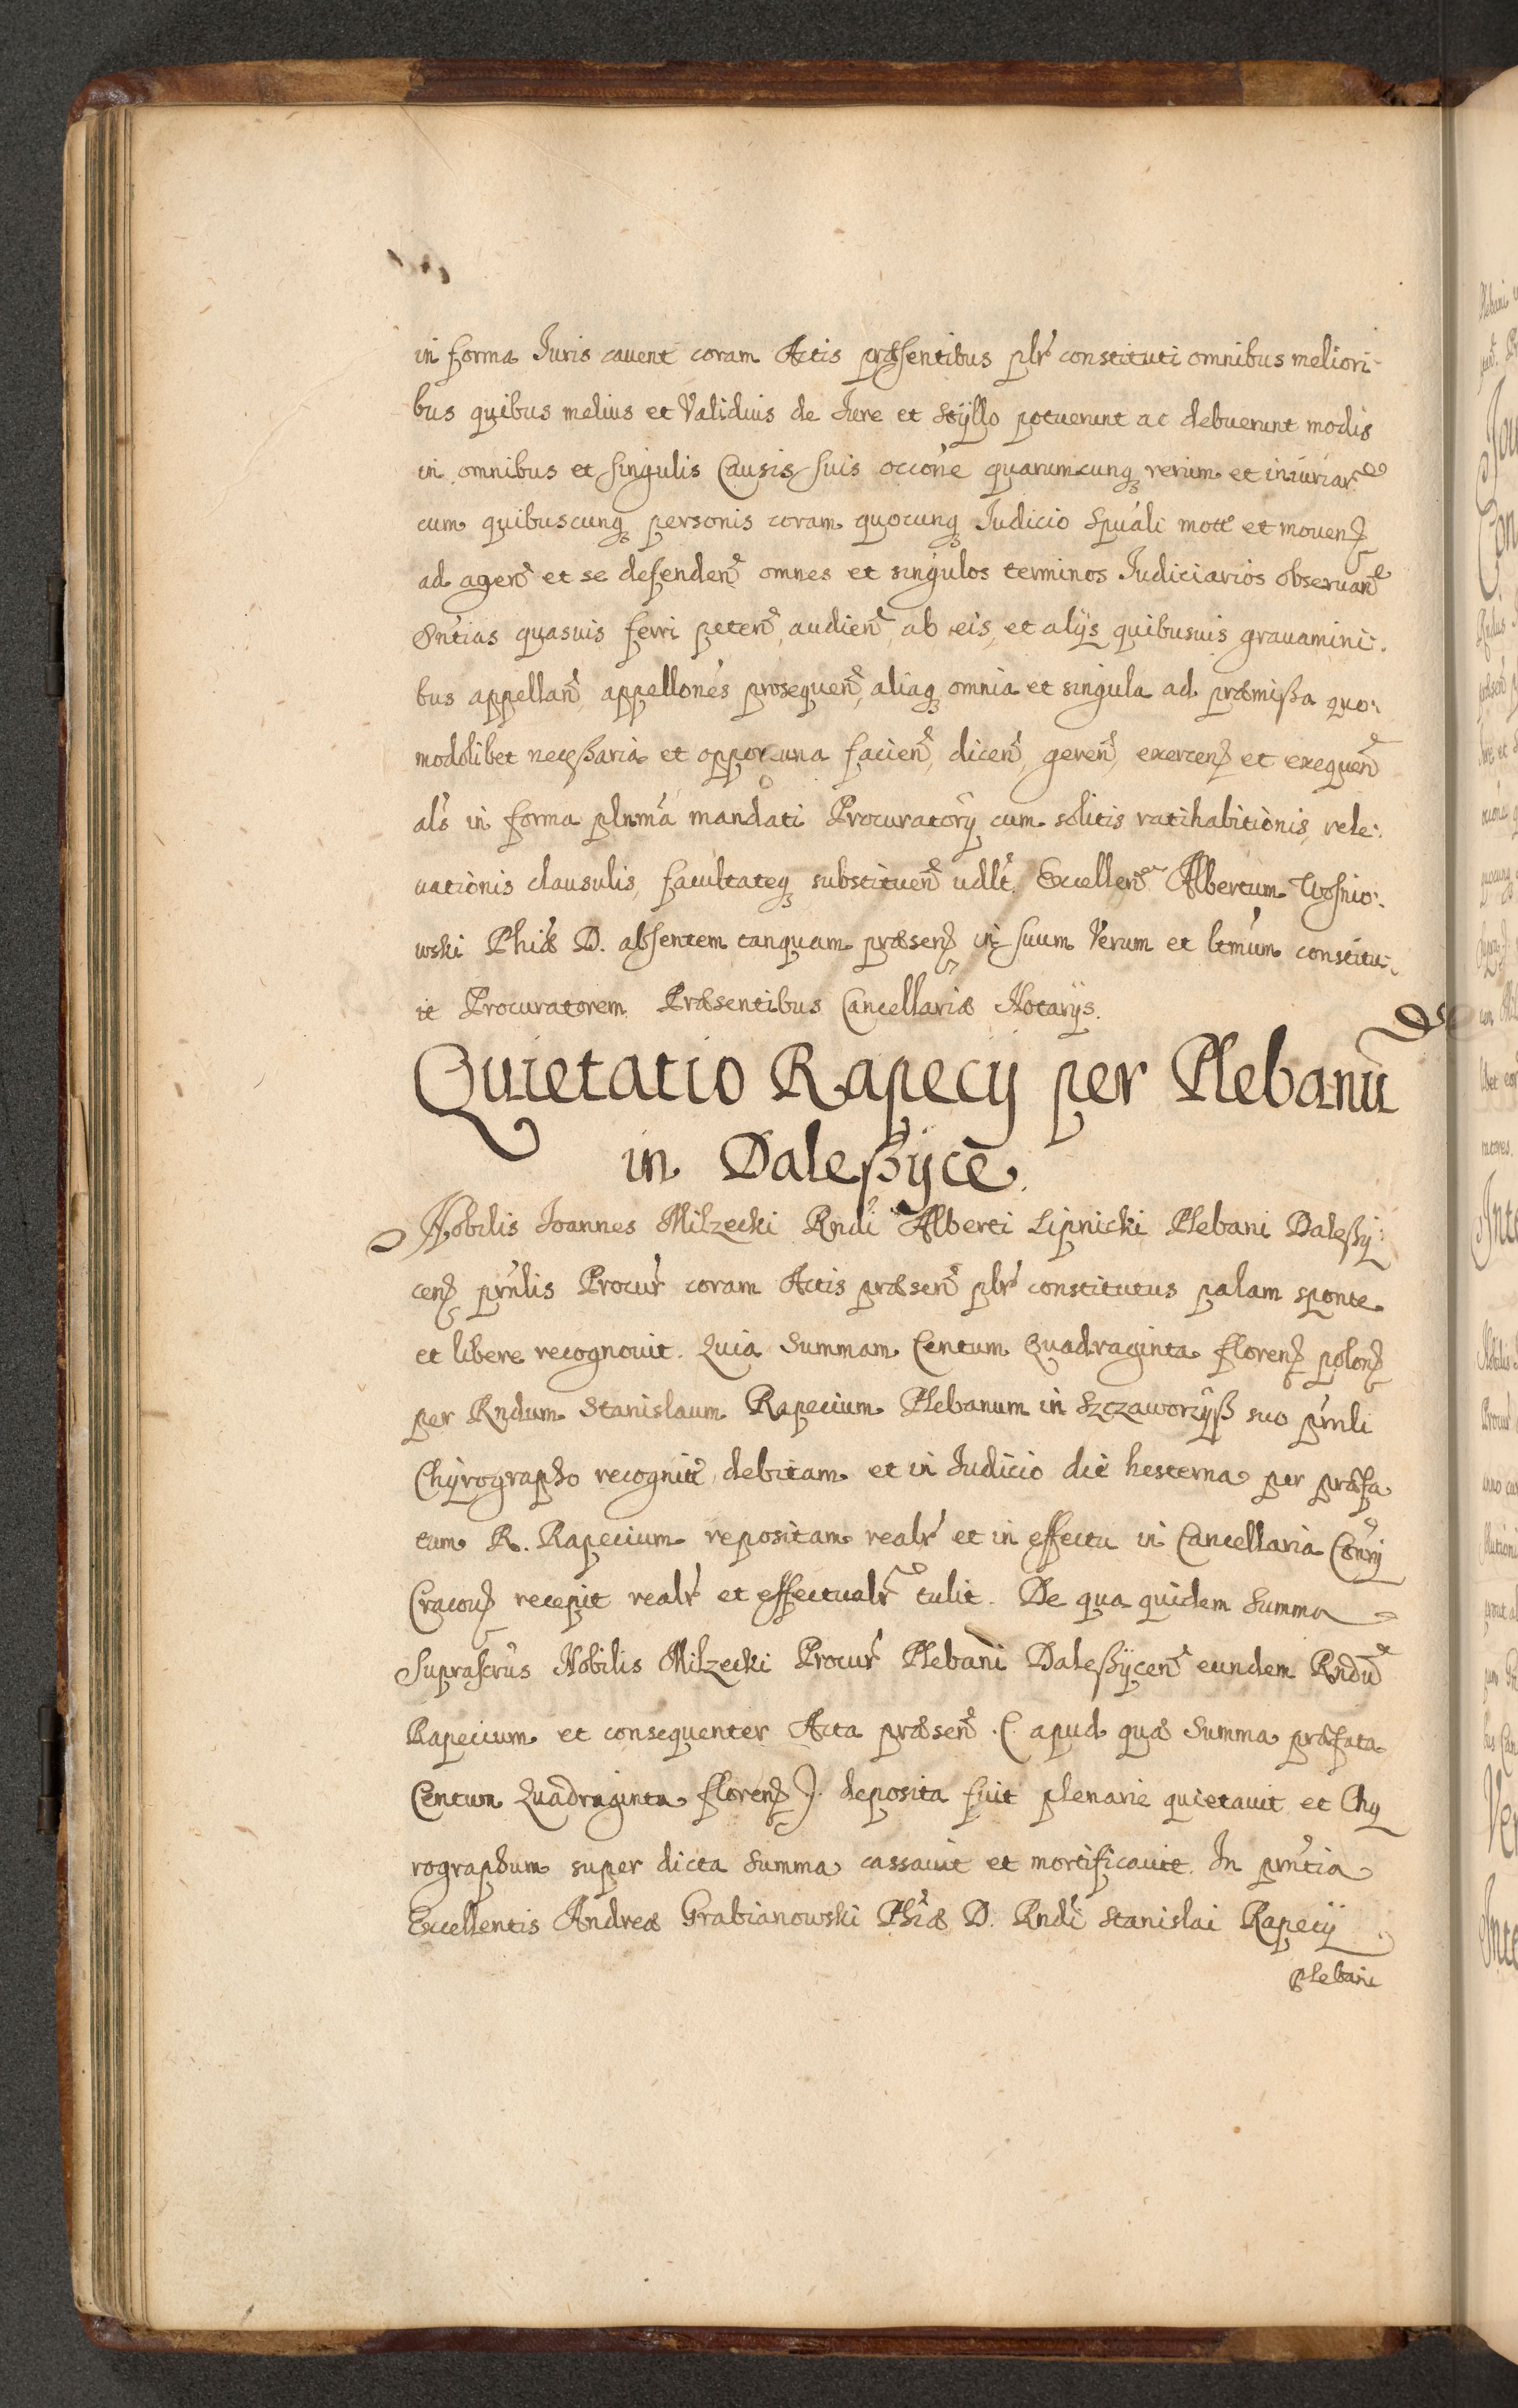 in forma Iuris cauent coram Actis præsentibus plr constituti omnibus meliori-
bus quibus melius et Validius de Iure et Styllo potuerunt ac debuerunt modis
in omnibus et singulis Causis suis occõne quarumcunq rerum et iniuriar
cum quibuscunq personis coram quocunq Iudicio Spuali mot et mouen
ad agen et se defenden omnes et singulos terminos Iudiciarios obseruan
Sntias quasuis ferri peten, audien, ab eis, et alijs quibusuis grauamini:
bus appellan, appellones prosequen, aliaq omnia et singula ad præmißa quo:
modolibet neceßaria et opportuna facien, dicen, geren, exercen et exequen
als in forma plnma mandati Procuratory cum solitis ratihabitionis, rele:
uationis clausulis, facultateq substituen udlt. Excellen Albertum Wosnio:
wski Phiæ D. absentem tanquam præsen in suum Verum et ltmum constitu:
it Procuratorem. Præsentibus Cancellariæ Notarijs.
Quietatio Rapecij per Plebanū
in Daleßÿcē.
Nobilis Joannes Milzecki Rndi Alberti Lipnicki Plebani Daleßÿ:
cen prnlis Procur coram Actis præsen plr constitutus palam sponte
et libere recognouit. Quia Summam Centum Quadraginta floren polon
per Rndum Stanislaum Rapecium Plebanum in Szczaworÿß suo prnli
Chÿrographo recognit, debitam et in Iudicio die hesterna per præfa
tum R. Rapecium repositam realr et in effectu in Cancellaria Conrij
Cracou recepit realr et effectualr tulit. De qua quidem Summa
Suprascrus Nobilis Milzecki Procur Plebani Daleßÿcen eundem Rndū
Rapecium et consequenter Acta præsen (apud quæ Summa præfata
Centum Quadraginta floren) deposita fuit plenarie quietauit et Chy
rographum super dicta Summa cassauit et mortificauit. In prntia
Excellentis Andreæ Grabianowski Phiæ D. Rndi Stanislai Rapecij
Plebani